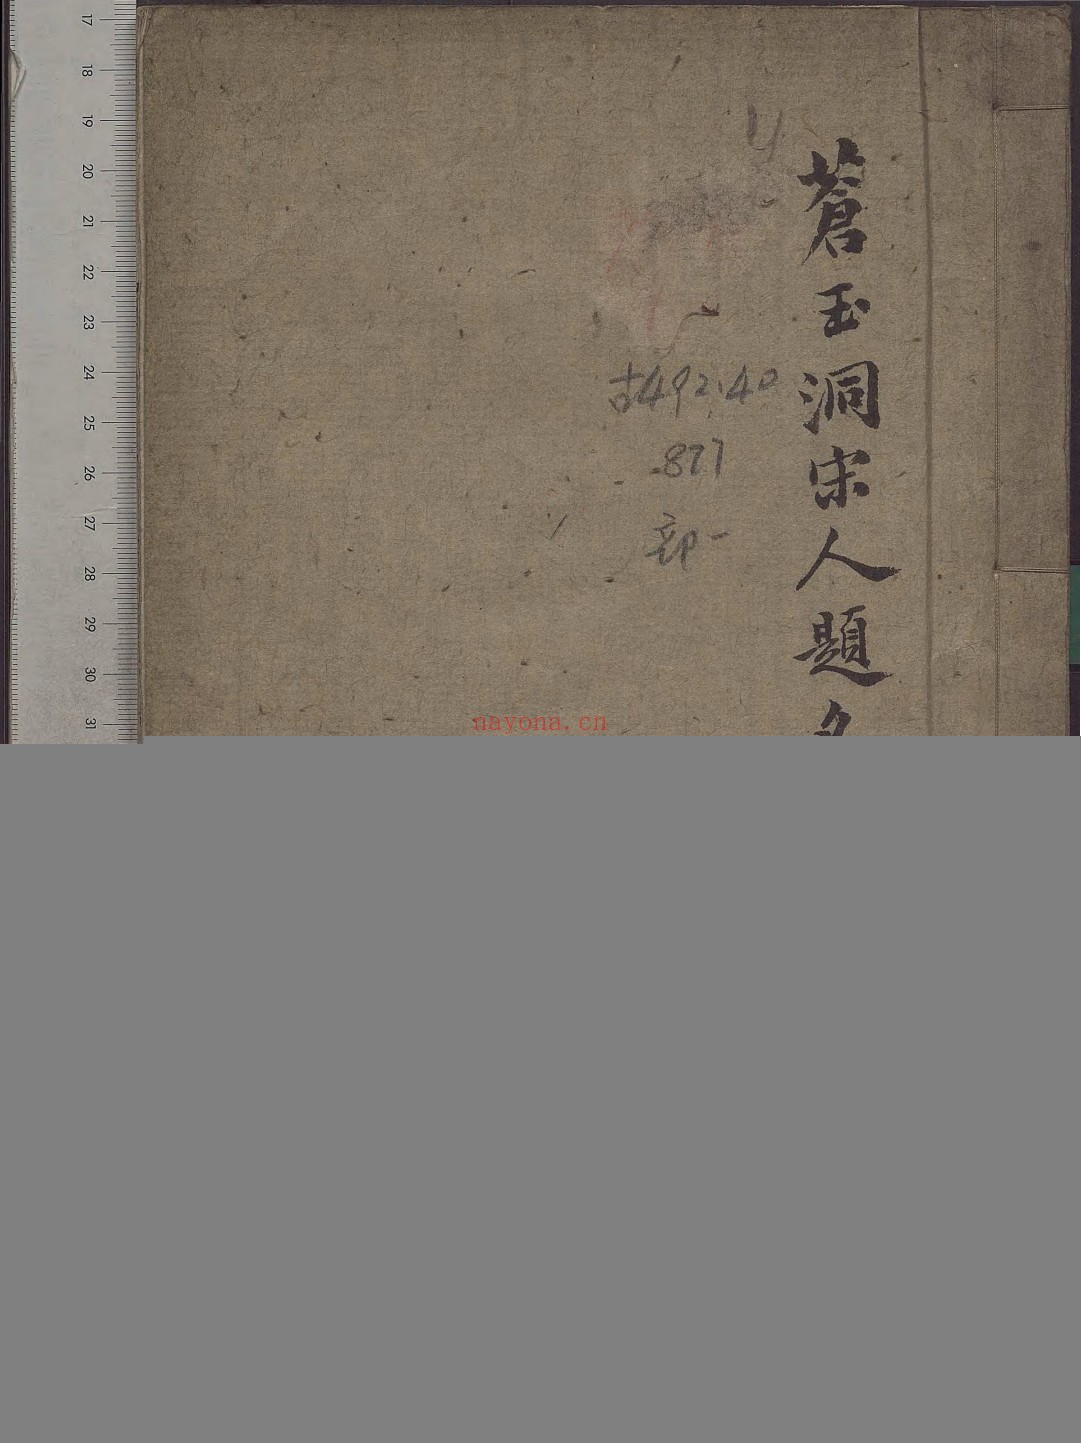 蒼玉洞宋人題名
古492.40
877
部一
nayona.cn
17
18
19
20
21
22
23
24
25
26
27
28
29
30
31